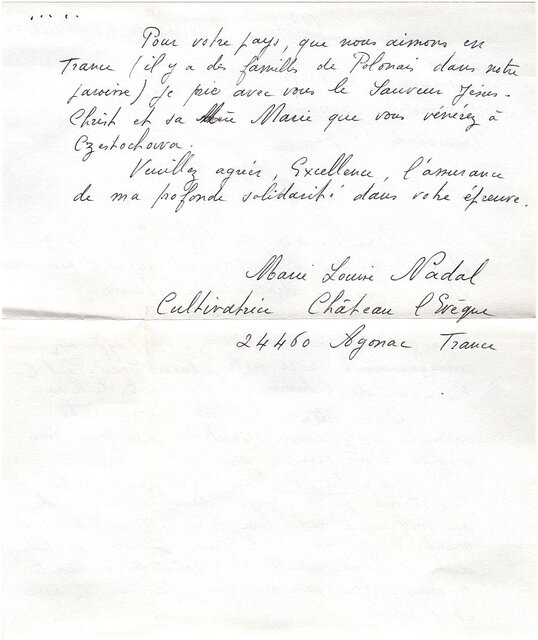 ....
Pour votre pays, que nous aimons en
France (il y a des familles de Polonais dans notre
paroisse) je prie avec vous le Sauveur Jésus-
Christ et sa Mère Marie que vous vénérez à
Czestochowa.
Veuillez agréer, Excellence, l'assurance
de ma profonde solidarité dans votre épreuve.
Marie Louise Nadal
Cultivatrice Château l'Evêque
24460 Agonac France